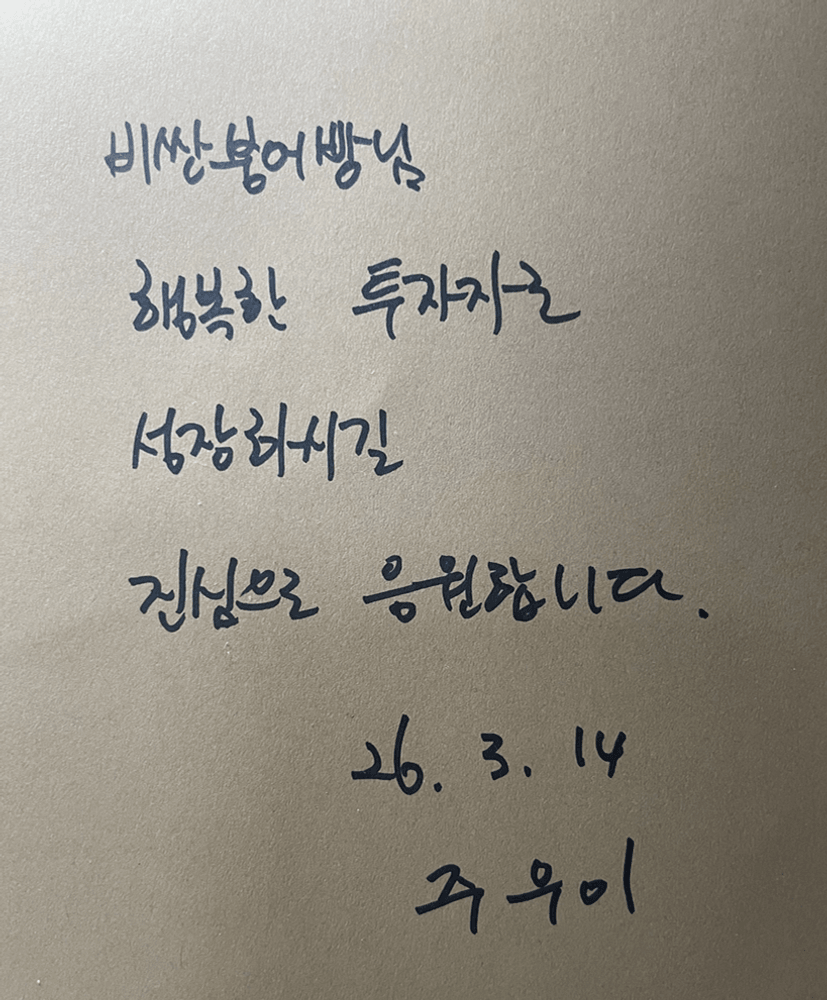 비싼붕어빵님
행복한 투자자로
성장하시길
진심으로 응원합니다.
26. 3. 14
주우이